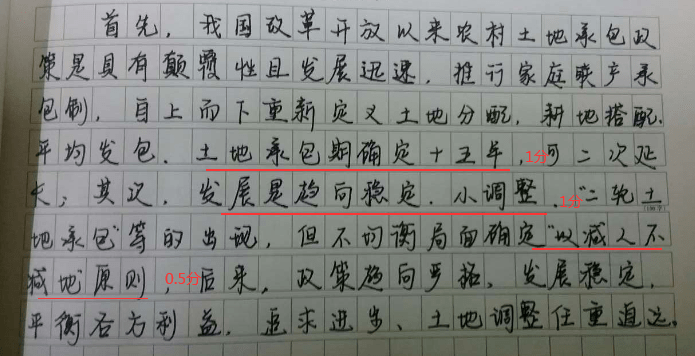 首先，我国改革开放以来农村土地承包政
策是具有颠覆性且发展迅速，推行家庭联产承
包制，自上而下重新定义土地分配，耕地搭配、
平均发包、土地承包期确定十五年，1分可二次延
长；其次，发展是趋向稳定、小调整，1分"二轮土
(100字)
地承包"等的出现，但不均衡局面确定"以减人不
减地"原则，0.5分后来，政策趋向严格，发展稳定，
平衡各方利益，追求进步、土地调整任重道远。